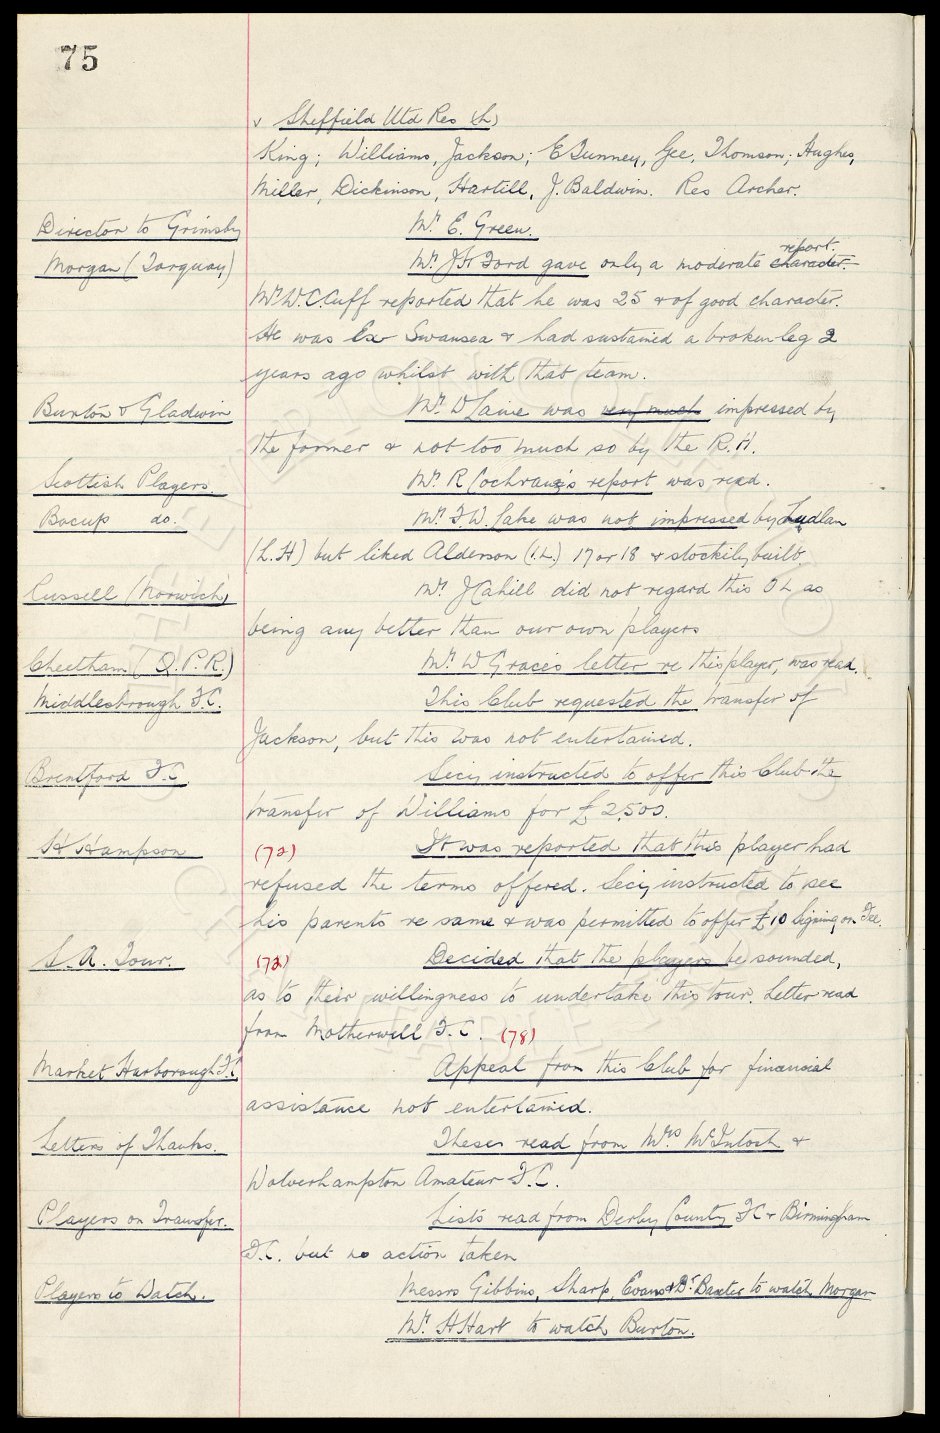 75
v Sheffield Utd Res (h)
King; Williams, Jackson; E Gunney, Gee, Thomson; Hughes,
Miller, Dickinson, Hartill, J. Baldwin. Res Archer.
Director to Grimsby Mr E. Green.
Morgan (Torquay) Mr J H Ford gave only a moderate character. report.
Mr W.C. Cuff reported that he was 25 & of good character.
He was Ex Swansea & had sustained a broken leg 2
years ago whilst with that team.
Burton & Gladwin Mr D Laine was very much impressed by
the former & not too much so by the R.H.
Scottish Players. Mr R Cochrane's report was read.
Bacup do. Mr F.W. Lake was not impressed by Ludlam
(L.H) but liked Alderson (I.L.) 17 or 18 & stockily built.
Russell (Norwich) Mr J Cahill did not regard this O L as
being any better than our own players
Cheetham (Q.P.R.) Mr W Grace's letter re this player, was read.
Middlesbrough F.C. This Club requested the transfer of
Jackson, but this was not entertained.
Brentford F.C. Secy instructed to offer this Club the
transfer of Williams for £2,500.
H Hampson (72) It was reported that this player had
refused the terms offered. Secy instructed to see
his parents re same & was permitted to offer £10 Signing on Fee.
S.A. Tour. (72) Decided that the players be sounded,
as to their willingness to undertake this tour. Letter read
from Motherwell F.C. (78)
Market Harborough F.C. Appeal from this Club for financial
assistance not entertained.
Letters of Thanks. These read from Mrs McIntosh &
Wolverhampton Amateur F.C.
Players on Transfer. Lists read from Derby County FC & Birmingham
F.C. but no action taken
Players to Watch. Messrs Gibbins, Sharp, Evans & Dr Baxter to watch Morgan
Mr H Hart to watch Burton.